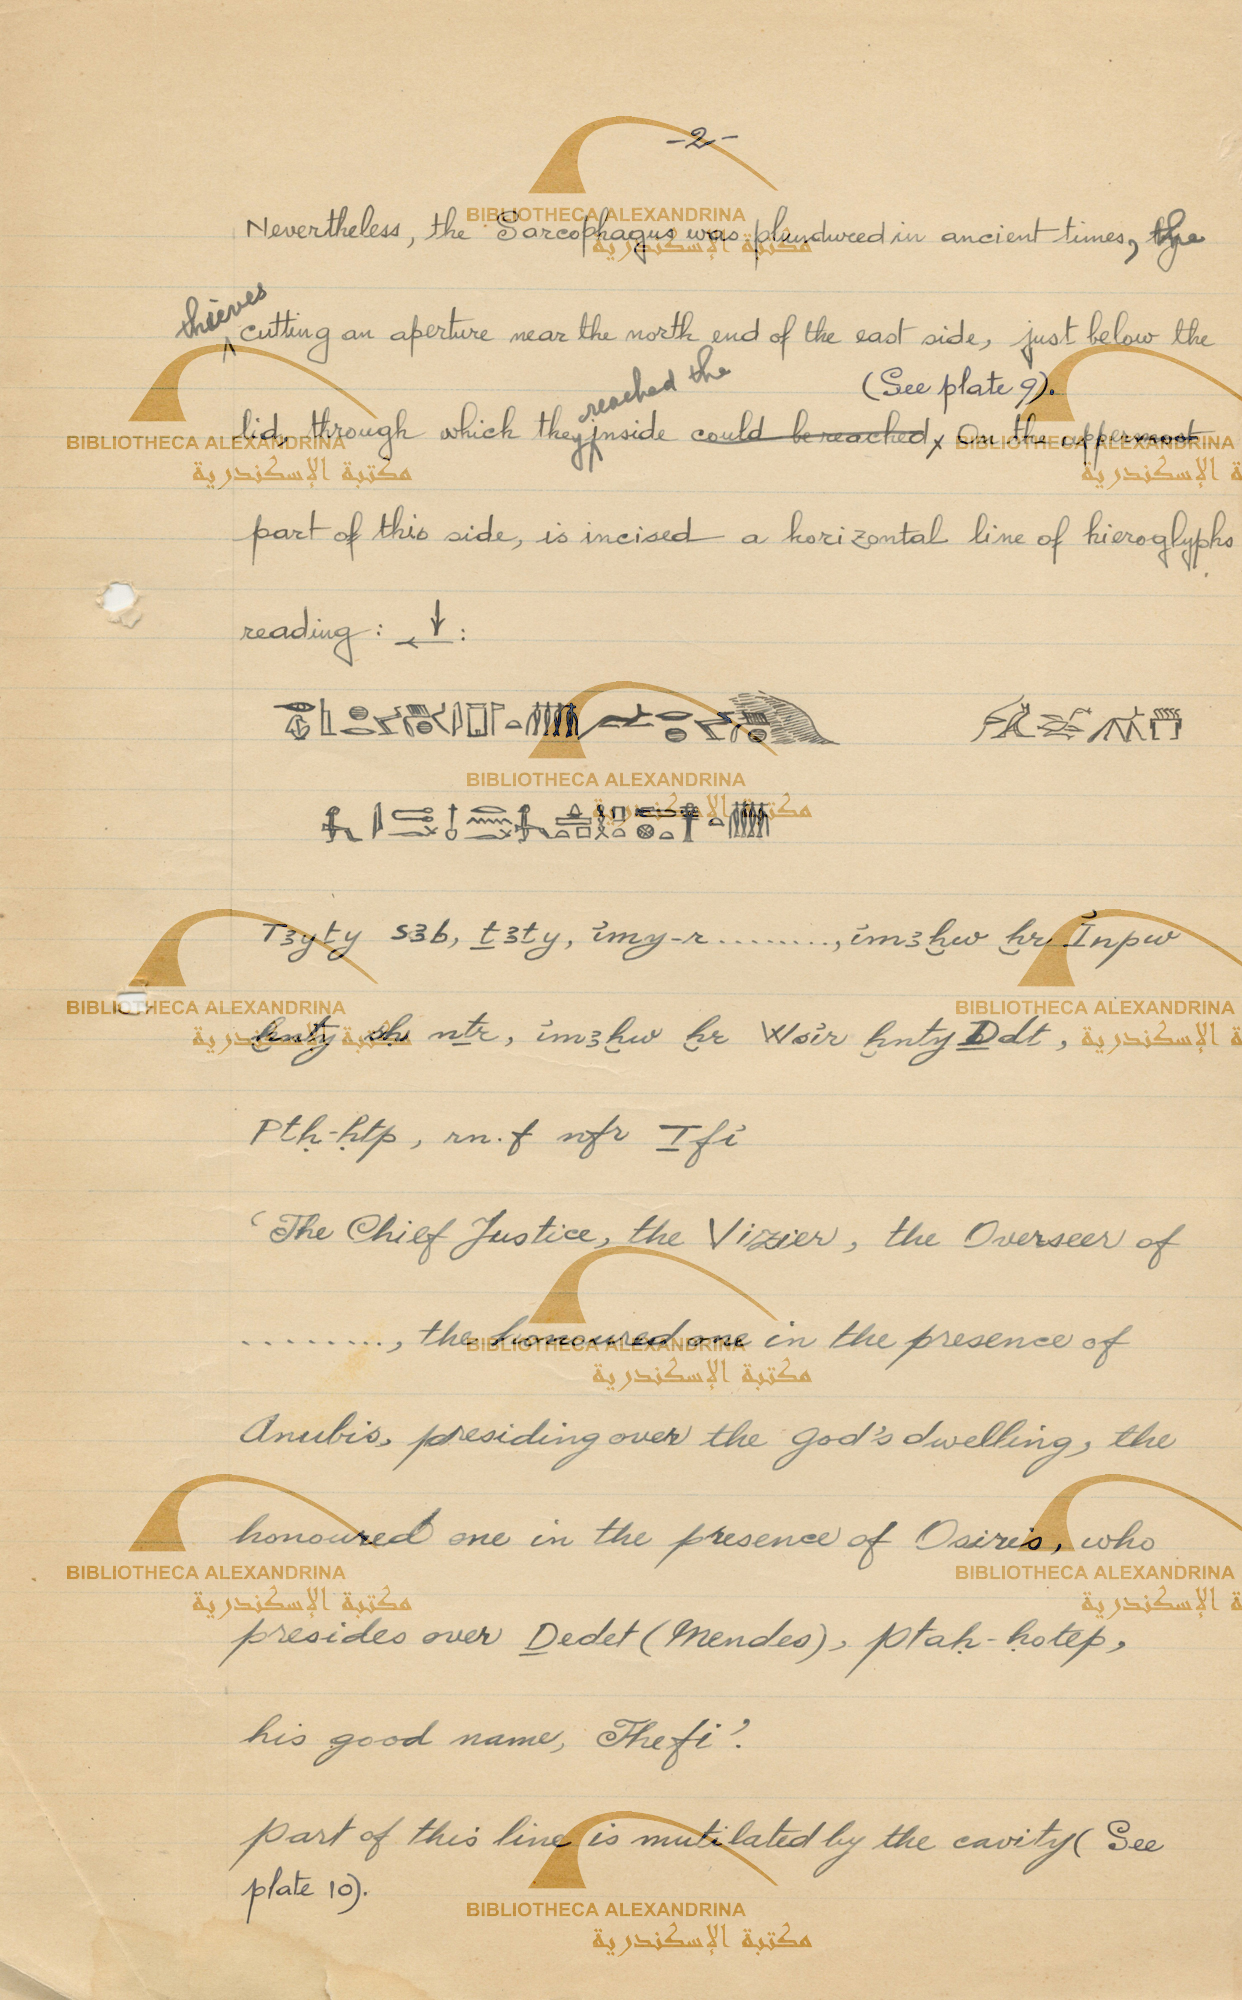 -2-
Nevertheless, the Sarcophagus was plundured in ancient times, the
thieves
cutting an aperture near the north end of the east side, just below the
reached the
(See plate 9).
lid, through which they inside could be reached x On the uppermost
part of this side, is incised a horizontal line of hieroglyphs
reading : :
Tꜣyty sꜣb, ṯꜣty, ỉmy-r ........., ỉmꜣḫw ḫr Ỉnpw
ḫnty sḥ nṯr, ỉmꜣḫw ḫr Wsỉr ḫnty Ḏdt,
Ptḥ-ḥtp, rn.f nfr Ṯfỉ
‘The Chief Justice, the Vizier, the Overseer of
........., the honoured one in the presence of
Anubis, presiding over the god's dwelling, the
honoured one in the presence of Osiris, who
presides over Ḏedet (Mendes), Ptaḥ-ḥotep,
his good name, Thefi’.
part of this line is mutilated by the cavity ( See
plate 10).
BIBLIOTHECA ALEXANDRINA
مكتبة الإسكندرية